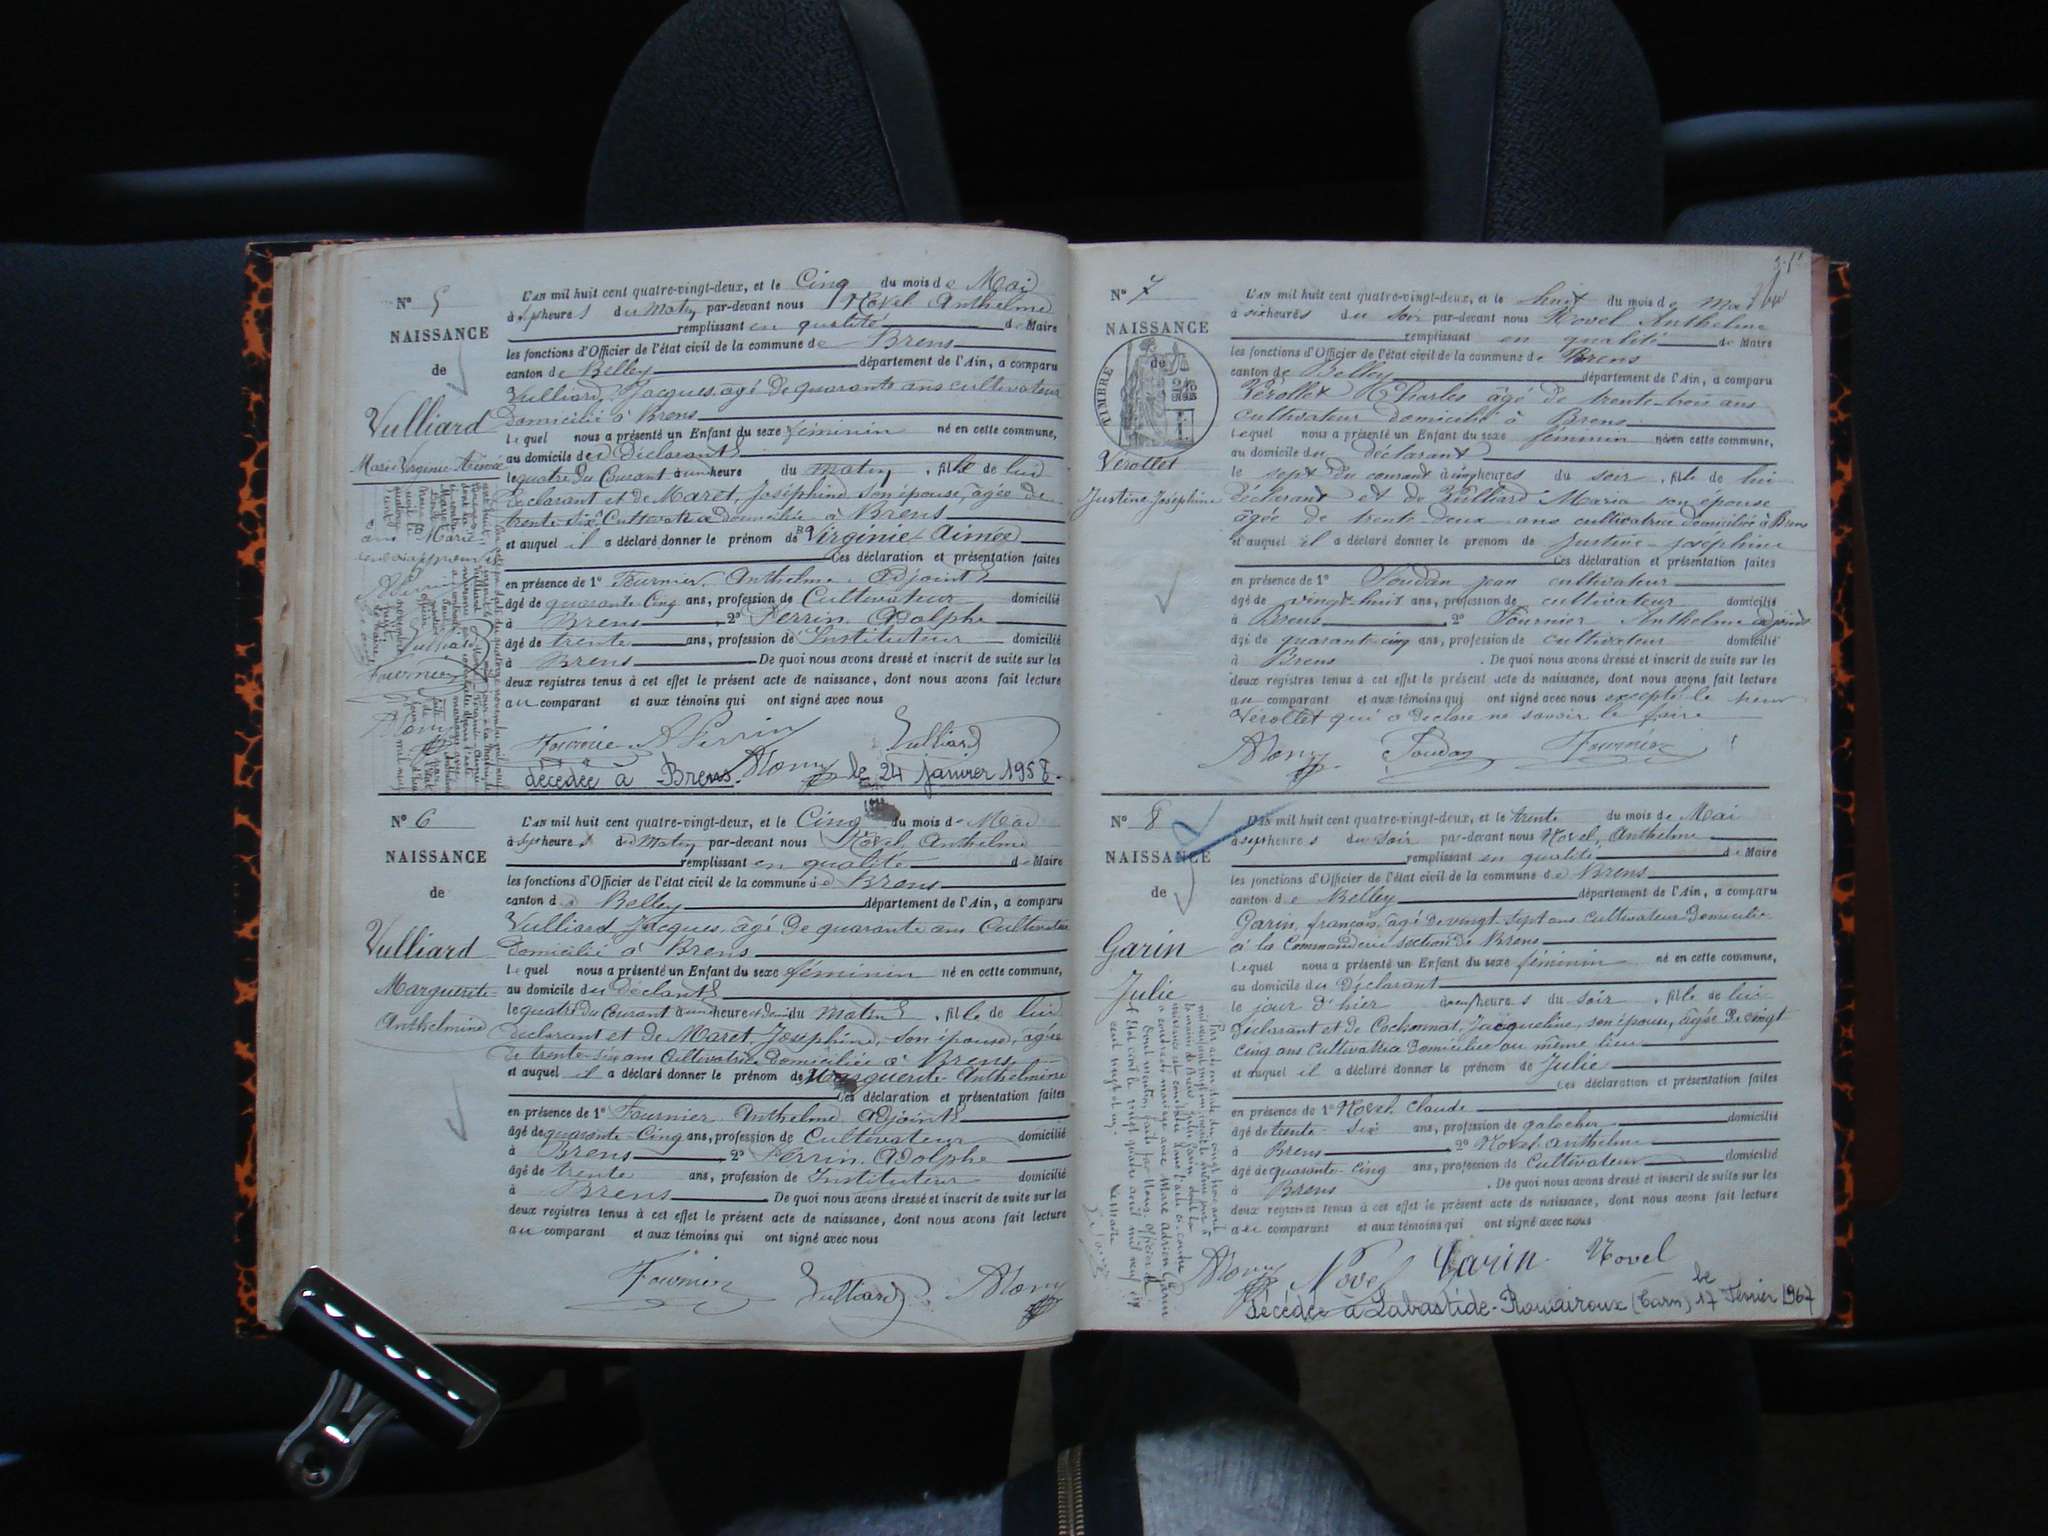 N° 5
NAISSANCE
de
Vulliard
Marie Virginie Aimée
L'an mil huit cent quatre-vingt-deux, et le Cinq du mois de Mai
à sept heures du Matin par-devant nous Novel Anthelme
remplissant en qualité de Maire
les fonctions d'Officier de l'état civil de la commune de Brens
canton de Belley département de l'Ain, a comparu
Vulliard, Jacques, agé de quarante ans cultivateur
domicilié à Brens
lequel nous a présenté un Enfant du sexe féminin né en cette commune,
au domicile du déclarant
le quatre du Courant à une heure du matin, fille de lui
déclarant et de Maret, Joséphine, son épouse, âgée de
trente six Cultivatrice domiciliée à Brens
et auquel il a déclaré donner le prénom de Virginie-Aimée
Ces déclaration et présentation faites
en présence de 1° Fournier, Anthelme, Adjoint
âgé de quarante-Cinq ans, profession de Cultivateur domicilié
à Brens 2° Perrin, Adolphe
âgé de trente ans, profession de Instituteur domicilié
à Brens De quoi nous avons dressé et inscrit de suite sur les
deux registres tenus à cet effet le présent acte de naissance, dont nous avons fait lecture
au comparant et aux témoins qui ont signé avec nous
Fournier A Perrin Vulliard
décédée à Brens le 24 janvier 1958.
N° 6
NAISSANCE
de
Vulliard
Marguerite-
Anthelmine
L'an mil huit cent quatre-vingt-deux, et le Cinq du mois de Mai
à sept heures du Matin par-devant nous Novel, Anthelme
remplissant en qualité de Maire
les fonctions d'Officier de l'état civil de la commune de Brens
canton de Belley département de l'Ain, a comparu
Vulliard Jacques, âgé de quarante ans Cultivateur
domicilié à Brens
lequel nous a présenté un Enfant du sexe féminin né en cette commune,
au domicile du déclant
le quatre du Courant à une heure et demi du matin, fille de lui
déclarant et de Maret, Joséphine, son épouse, âgée
de trente-six ans Cultivatrice domiciliée à Brens
et auquel il a déclaré donner le prénom de Marguerite-Anthelmine
Ces déclaration et présentation faites
en présence de 1° Fournier, Anthelme, Adjoint
âgé de quarante-Cinq ans, profession de Cultivateur domicilié
à Brens 2° Perrin, Adolphe
âgé de trente ans, profession de Instituteur domicilié
à Brens De quoi nous avons dressé et inscrit de suite sur les
deux registres tenus à cet effet le présent acte de naissance, dont nous avons fait lecture
au comparant et aux témoins qui ont signé avec nous
Fournier Vulliard
N° 7
NAISSANCE
de
TIMBRE
Vérollet
Justine Joséphine
L'an mil huit cent quatre-vingt-deux, et le huit du mois de mai
à six heures du soir par-devant nous Novel Anthelme
remplissant en qualité de Maire
les fonctions d'Officier de l'état civil de la commune de Brens
canton de Belley département de l'Ain, a comparu
Vérollet Charles âgé de trente-trois ans
cultivateur domicilié à Brens
lequel nous a présenté un Enfant du sexe féminin né en cette commune,
au domicile du déclarant
le sept du courant à cinq heures du soir, fille de lui
déclarant et de Vulliard Maria son épouse
âgée de trente-deux ans cultivatrice domiciliée à Brens
et auquel il a déclaré donner le prénom de Justine-Joséphine
Ces déclaration et présentation faites
en présence de 1° Soudan Jean cultivateur
âgé de vingt-huit ans, profession de cultivateur domicilié
à Brens 2° Fournier Anthelme adjoint
âgé de quarante-cinq ans, profession de cultivateur domicilié
à Brens. De quoi nous avons dressé et inscrit de suite sur les
deux registres tenus à cet effet le présent acte de naissance, dont nous avons fait lecture
au comparant et aux témoins qui ont signé avec nous excepté le sieur
Vérollet qui a déclaré ne savoir le faire
Soudan Fournier
N° 8
NAISSANCE
de
Garin
Julie
L'an mil huit cent quatre-vingt-deux, et le trente du mois de Mai
à sept heures du soir par-devant nous Novel, Anthelme
remplissant en qualité de Maire
les fonctions d'Officier de l'état civil de la commune de Brens
canton de Belley département de l'Ain, a comparu
Garin, françois, âgé de vingt-sept ans cultivateur domicilié
à la Commanderie section de Brens
lequel nous a présenté un Enfant du sexe féminin né en cette commune,
au domicile du déclarant
le jour d'hier à neuf heures du soir, fille de lui
déclarant et de Cochonnat, Jacqueline, son épouse, âgée de vingt
cinq ans cultivatrice domiciliée au même lieu
et auquel il a déclaré donner le prénom de Julie
Ces déclaration et présentation faites
en présence de 1° Novel Claude
âgé de trente-six ans, profession de galocher domicilié
à Brens 2° Novel Anthelme
âgé de quarante-cinq ans, profession de Cultivateur domicilié
à Brens. De quoi nous avons dressé et inscrit de suite sur les
deux registres tenus à cet effet le présent acte de naissance, dont nous avons fait lecture
au comparant et aux témoins qui ont signé avec nous
Novel Garin Novel
décédée à Labastide-Rouairoux (Tarn) le 17 Février 1967